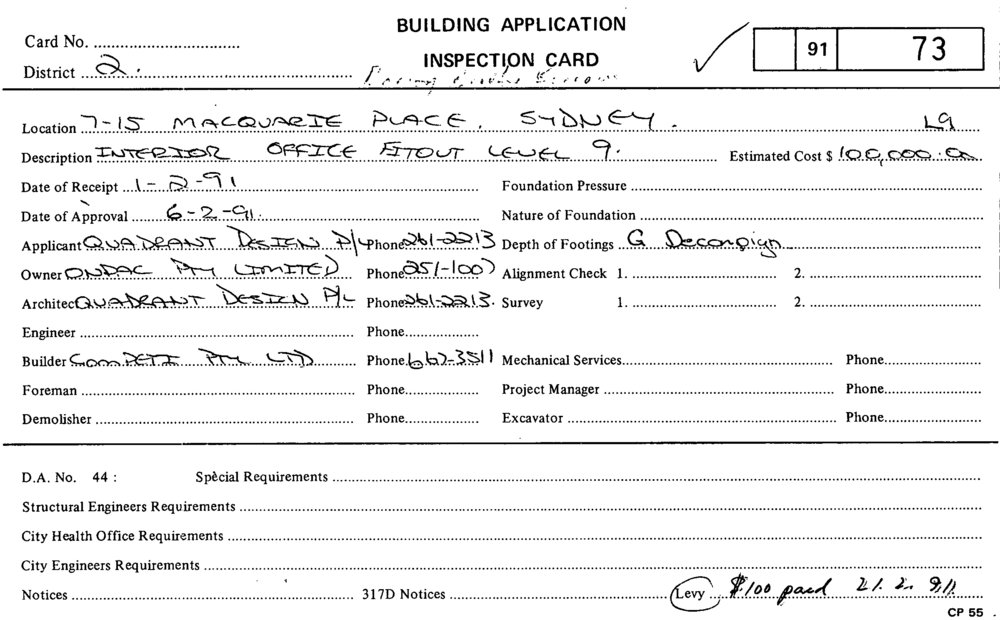 BUILDING APPLICATION
INSPECTION CARD
Card No. 
District 2.
91 73
Location 7-15 MACQUARIE PLACE. SYDNEY. L9
Description INTERIOR OFFICE FITOUT LEVEL 9. Estimated Cost $ 100,000.00
Date of Receipt 1-2-91 Foundation Pressure
Date of Approval 6-2-91. Nature of Foundation
Applicant QUADRANT DESIGN P/L Phone 261-2213 Depth of Footings G.
Owner ONDAC PTY LIMITED Phone 251-1007 Alignment Check 1. 2.
Architec QUADRANT DESIGN P/L Phone 261-2213. Survey 1. 2.
Engineer Phone
Builder COMPETI PTY LTD Phone 667-3511 Mechanical Services Phone
Foreman Phone Project Manager Phone
Demolisher Phone Excavator Phone
D.A. No. 44 : Special Requirements
Structural Engineers Requirements
City Health Office Requirements
City Engineers Requirements
Notices 317D Notices Levy $100 paid 21.2.91.
CP 55